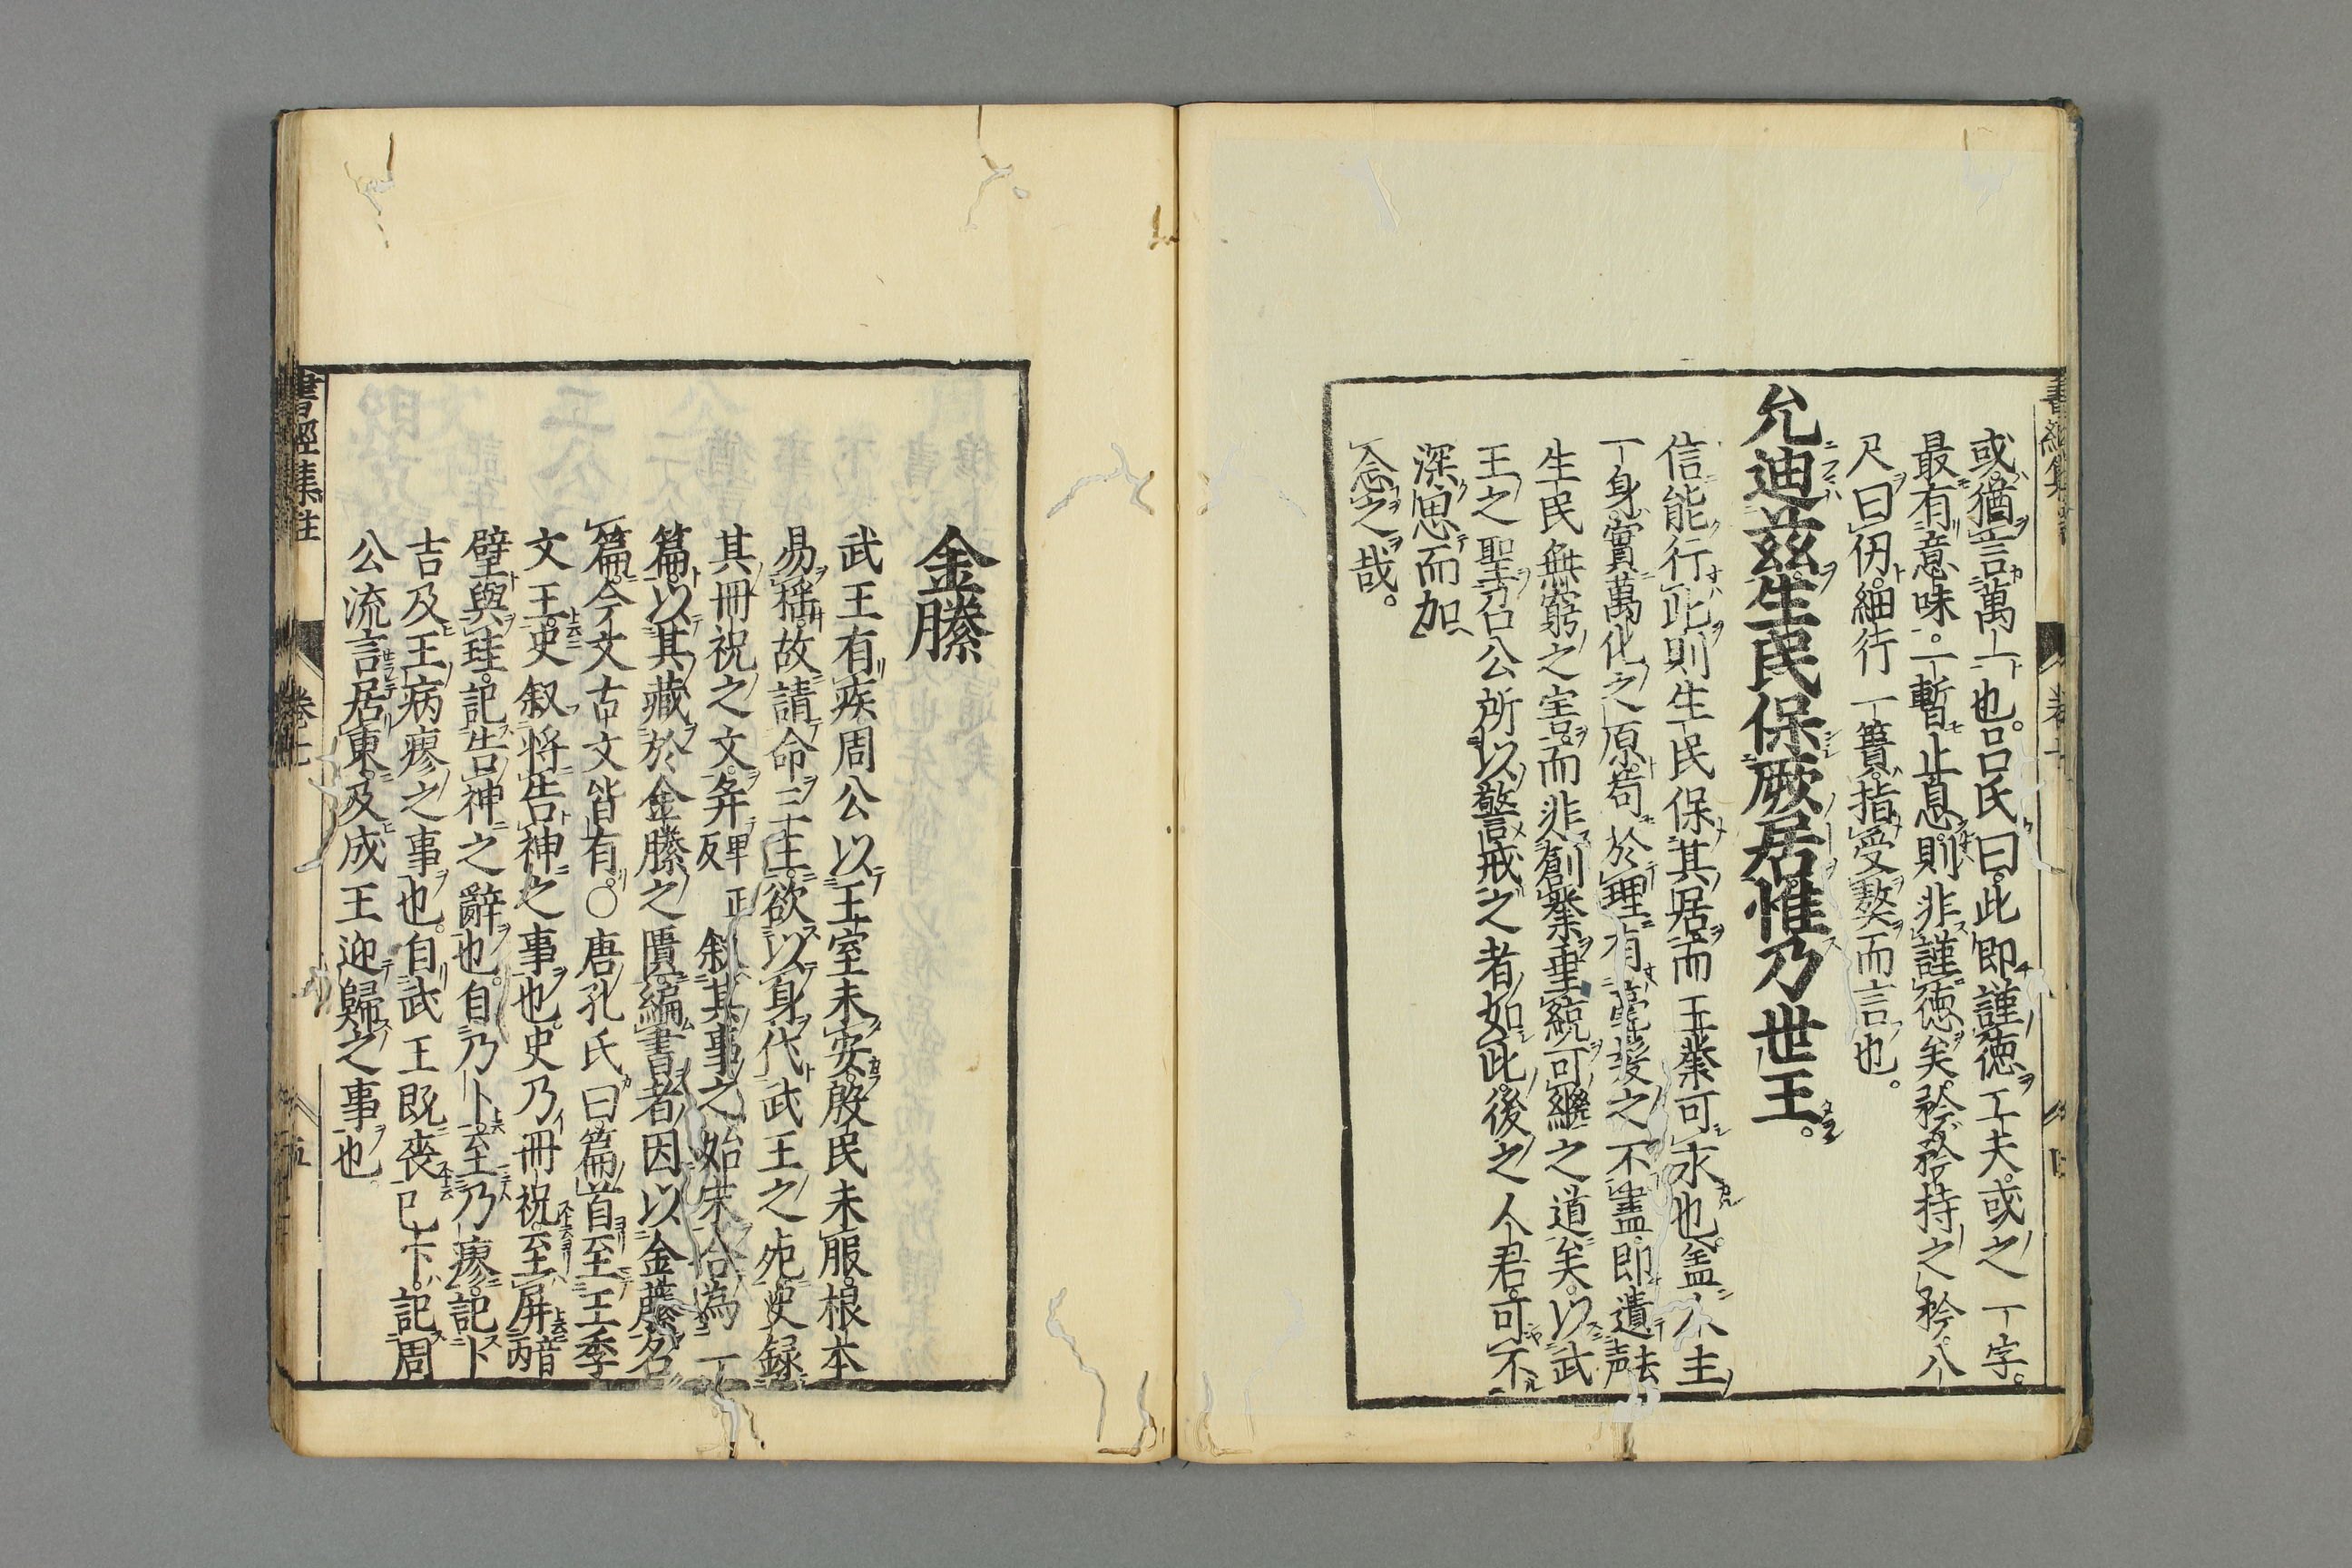 或猶言萬一也。呂氏曰。此即謹徳工夫。或之一字。
最有意味。一暫止息。則非謹徳矣。矜矜持之矜。八
尺曰仞。細行一簣。指受獒而言也。
允迪茲。生民保厥居。惟乃世王。
信能行此。則生民保其居。而王業可永也。盖人主
一身。實萬化之原。苟於理有毫髮之不盡。即遺
生民無窮之害。而非創業垂統可繼之道矣。以武
王之聖。召公所以警戒之者如此。後之人君。可不
深思而加
念之哉。
金縢
武王有疾。周公以王室未安。殷民未服。根本
易揺。故請命三王。欲以身代武王之死。史録
其冊祝之文。并叙其事之始末。合為一
篇。以其藏於金縢之匱。編書者因以金縢名
篇。今文古文皆有。○唐孔氏曰。篇首至王季
文王。史叙将告神之事也。史乃冊祝。至屏
壁與珪。記告神之辭也。自乃卜至乃瘳。記卜
吉及王病瘳之事也。自武王既喪已下。記周
公流言居東。及成王迎歸之事也
書經集註 卷七 五